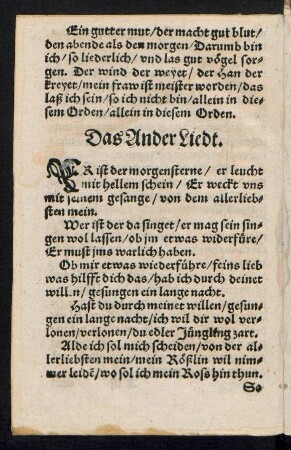 Ein gutter mut/der macht gut blut/
den abende als den morgen/Darumb bin
ich/so liederlich/vnd las gut vögel sor-
gen. Der wind der weyet/der Han der
kreyet/mein fraw ist meister worden/das
laß ich sein/so ich nicht bin/allein in die-
sem Orden/allein in diesem Orden.
Das Ander Liedt.
ER ist der morgensterne/er leucht
mit hellem schein/Er weckt vns
mit seinem gesange/von dem allerlieb-
sten mein.
Wer ist der da singet/er mag sein sin-
gen wol lassen/ob jm etwas widerfüre/
Er must jms warlich haben.
Ob mir etwas wiederführe/feins lieb
was hilfft dich das/hab ich durch deinet
will.n/gesungen ein lange nacht.
Hast du durch meinet willen/gesun-
gen ein lange nacht/ich wil dir wol ver-
lonen/verlonen/du edler Jüngling zart.
Alde ich sol mich scheiden/von der al-
lerliebsten mein/mein Rößlin wil nim-
mer leidē/wo sol ich mein Ross hin thun.
So